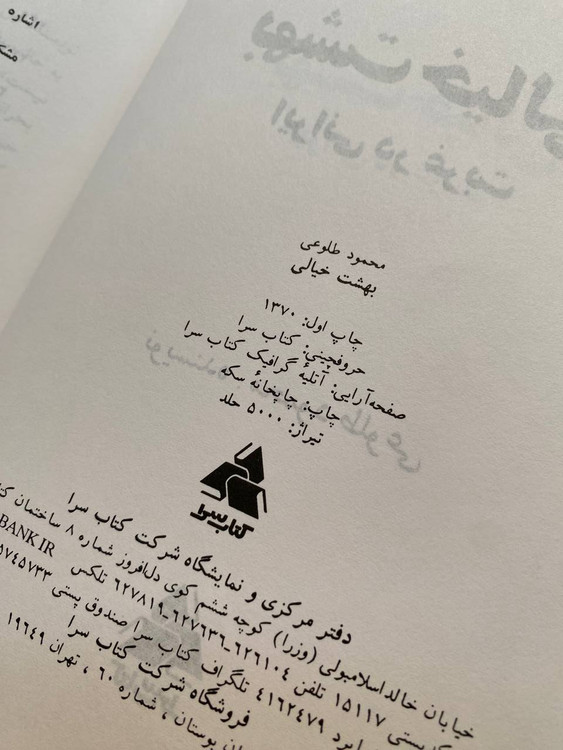 اشاره
بهشت خیالی
ایرانی در غربت
محمود طلوعی
بهشت خیالی
چاپ اول: ۱۳۷۰
حروفچینی: کتاب سرا
صفحه‌آرایی: آتلیهٔ گرافیک کتاب سرا
چاپ: چاپخانهٔ سکه
تیراژ: ۵۰۰۰ جلد
کتاب‌سرا
دفتر مرکزی و نمایشگاه شرکت کتاب سرا
خیابان خالداسلامبولی (وزرا) کوچه ششم کوی دل‌افروز شماره ۸ ساختمان
۱۵۱۱۷ تلفن ۶۲۶۱۰۴-۶۲۷۶۳۶-۶۲۷۸۱۹ تلکس BANK IR
۴۱۶۲۴۷۹ تلگراف کتاب سرا صندوق پستی ۵۷۴۵۷۳۳
فروشگاه شرکت کتاب سرا
بوستان ، شماره ۶۰ ، تهران ۱۹۶۴۹